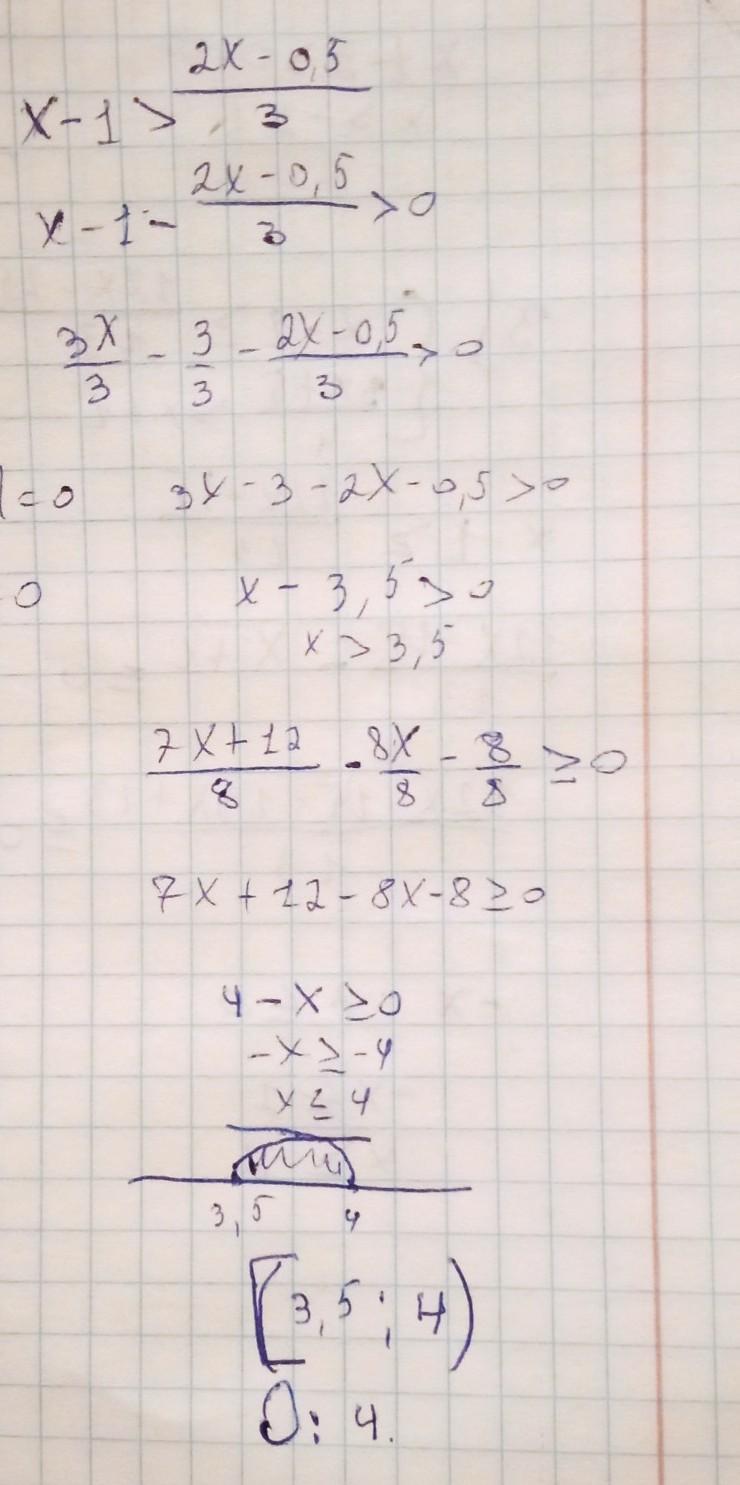 x - 1 > (2x - 0,5)/3
x - 1 - (2x - 0,5)/3 > 0
3x/3 - 3/3 - (2x - 0,5)/3 > 0
= 0 3x - 3 - 2x - 0,5 > 0
0 x - 3,5 > 0
x > 3,5
(7x + 12)/8 - 8x/8 - 8/8 ≥ 0
7x + 12 - 8x - 8 ≥ 0
4 - x ≥ 0
-x ≥ -4
x ≤ 4
3,5 4
[3,5 ; 4)
О: 4.